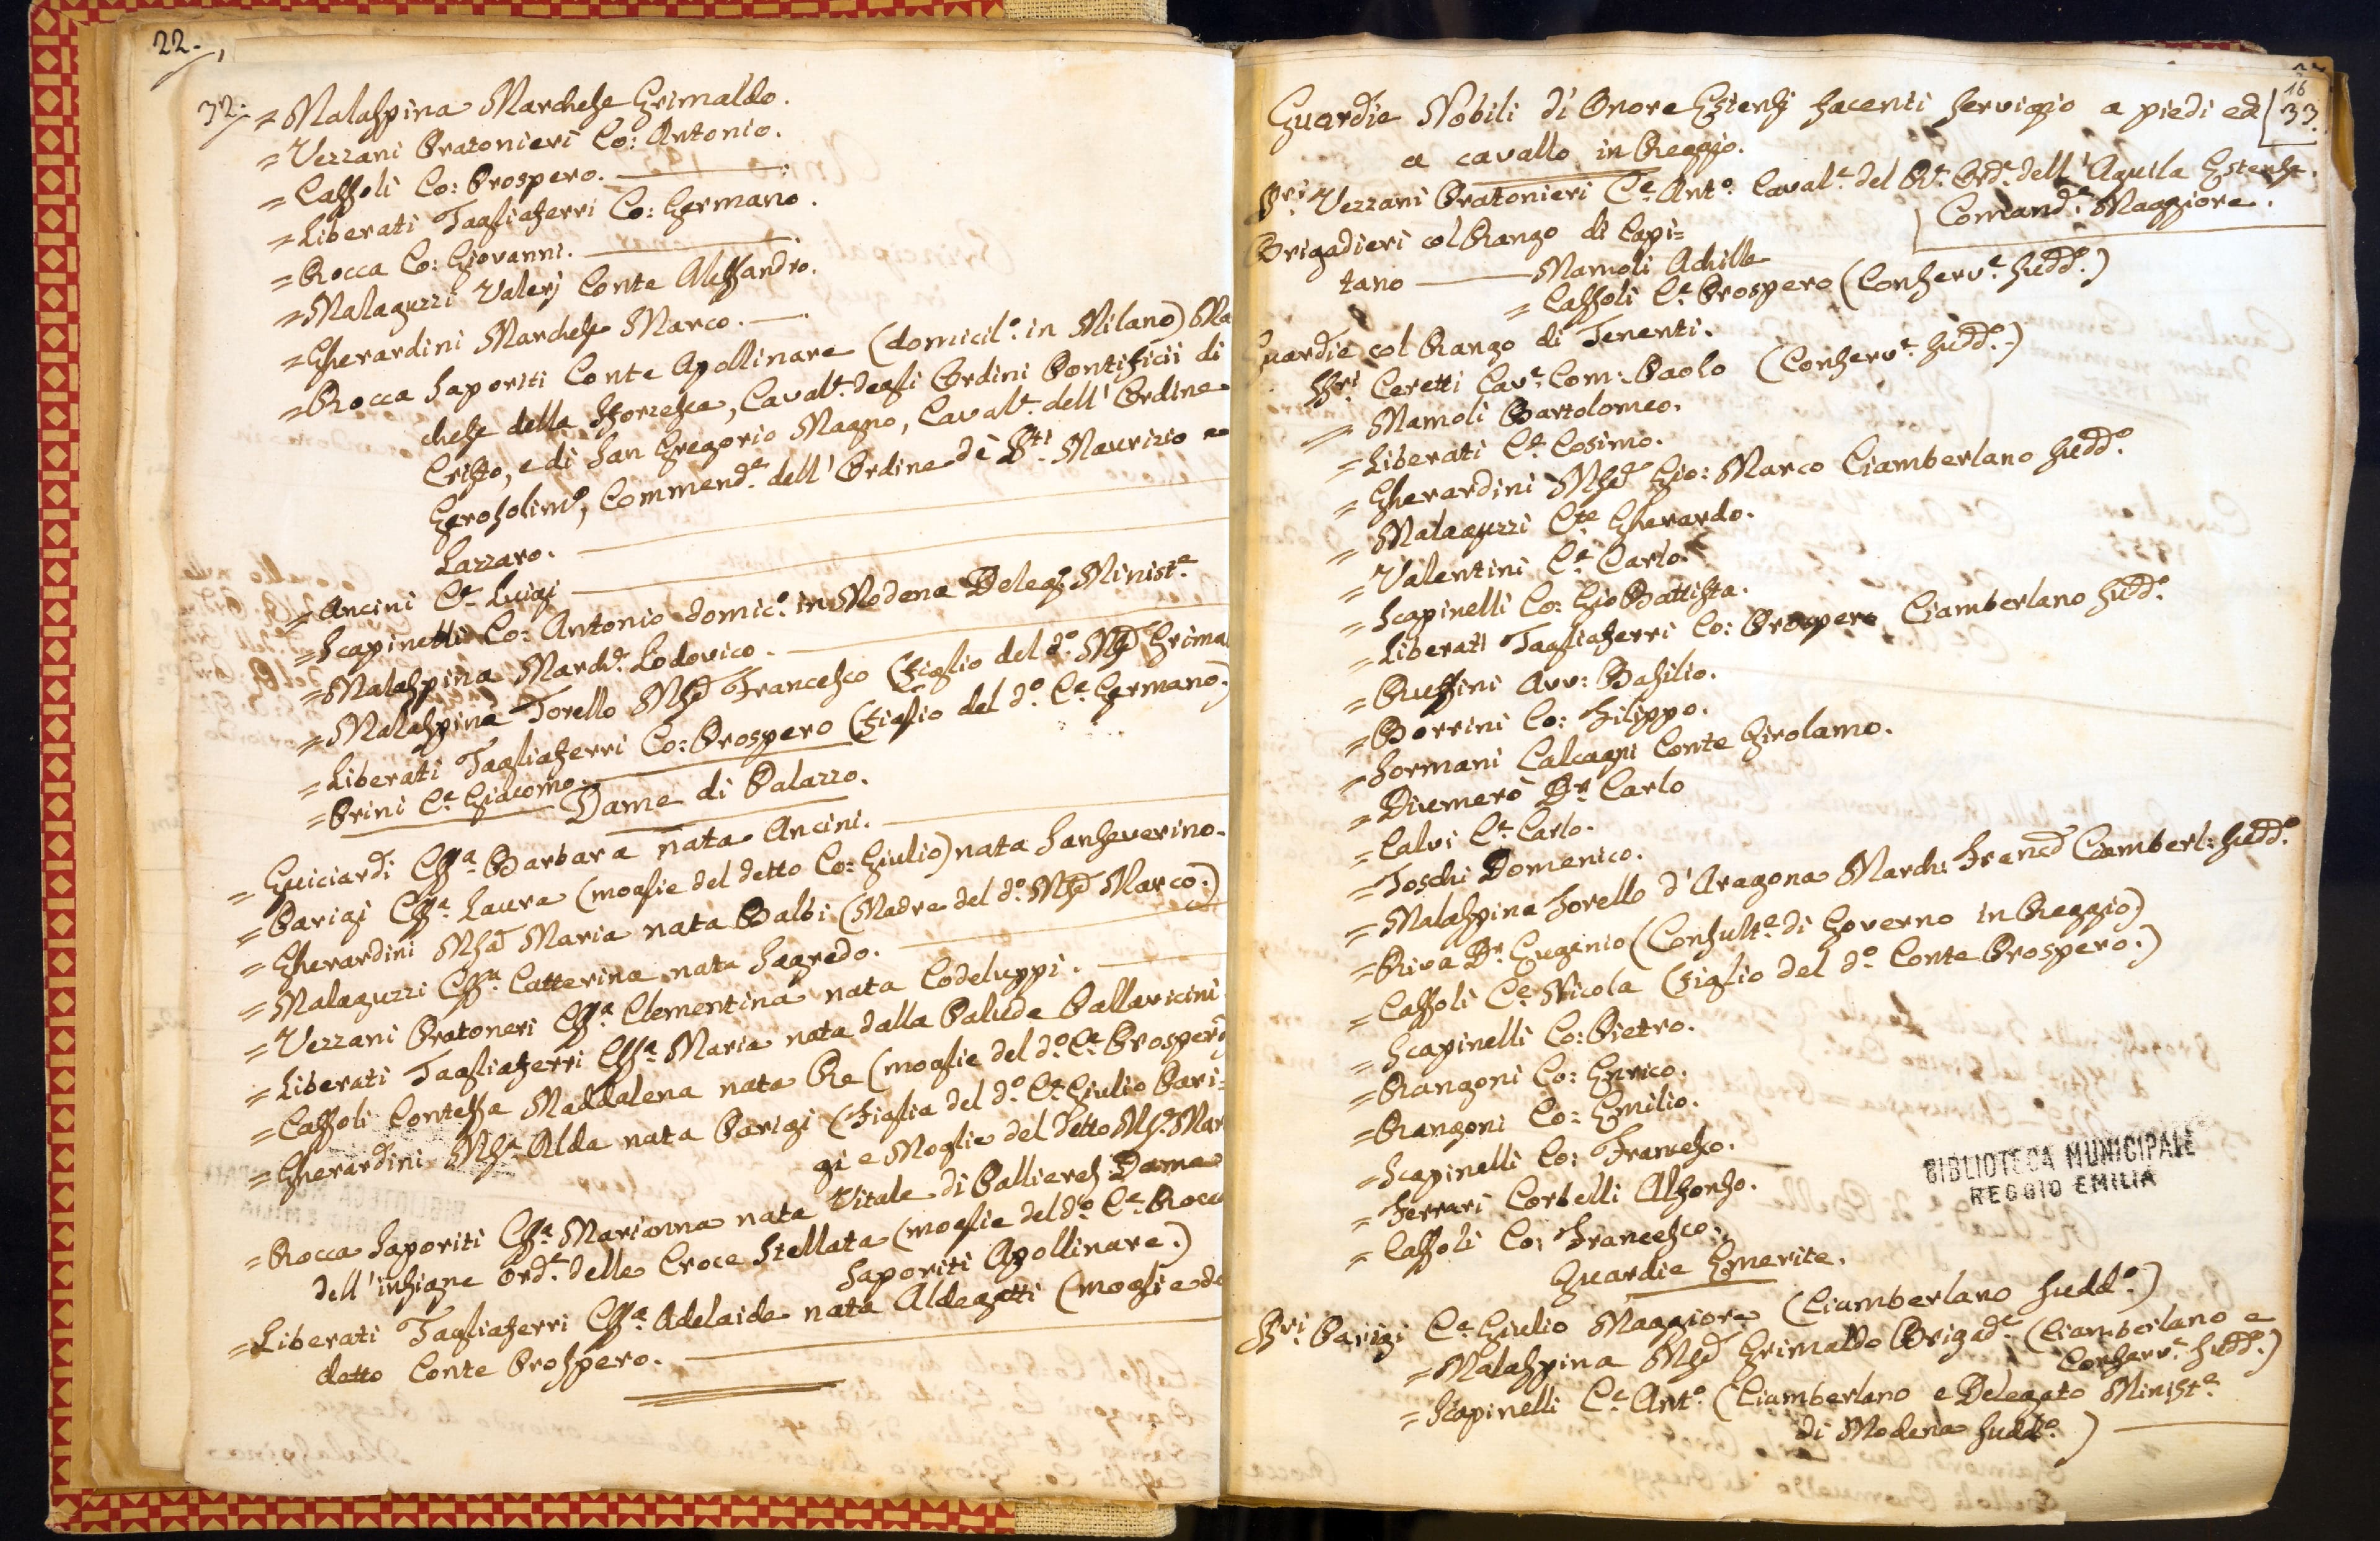 22.
32.
= Malaspina Marchese Grimaldo.
= Vezzani Pratonieri Co: Antonio.
= Cassoli Co: Prospero.
= Liberati Tagliaferri Co: Germano.
= Rocca Co: Giovanni.
= Malaguzzi Valerj Conte Alessandro.
= Gherardini Marchese Marco.
= Rocca Saporiti Conte Apollinare (domicil.º in Milano) Mar
chese della Sforzesca, Caval.e degli Ordini Pontificii di
Cristo, e di San Gregorio Magno, Caval.e dell'Ordine
Gerosolim.º, Commend.e dell'Ordine di S.ti Maurizio e
Lazzaro.
= Ancini C.e Luigi
= Scapinelli Co: Antonio domic.º in Modena Deleg. Minist.e
= Malaspina March.e Lodovico.
= Malaspina Torello Mse Francesco (Figlio del d.º Mse Grima
= Liberati Tagliaferri Co: Prospero (Figlio del d.º C.e Germano.)
= Prini C.e Giacomo.
Dame di Palazzo.
= Guiciardi Cssa Barbara nata Ancini.
= Parigi Cssa Laura (moglie del detto Co: Giulio) nata Sanseverino.
= Gherardini Msa Maria nata Balbi (Madre del d.º Mse Marco.)
= Malaguzzi Cssa Catterina nata Sagredo.
= Vezzani Pratoneri Cssa Clementina nata Codeluppi.
= Liberati Tagliaferri Cssa Maria nata dalla Palude Pallavicini
= Cassoli Contessa Maddalena nata Re (moglie del d.º C.e Prospero)
= Gherardini Msa Alda nata Parigi (Figlia del d.º C.e Giulio Pari=
gi e Moglie del detto Mse Mar
= Rocca Saporiti Cssa Marianna nata Vitale di Pallieres Dama
dell'insigne Ord.e della Croce Stellata (moglie del d.º C.e Rocca
Saporiti Apollinare.)
= Liberati Tagliaferri Cssa Adelaide nata Aldegatti (moglie de
detto Conte Prospero.
16
33.
Guardie Nobili di Onore Estensi facenti servigio a piedi ed
a cavallo in Reggio.
Sri Vezzani Pratonieri C.e Ant.º Caval.e del R.e Ord.e dell'Aquila Estense.
Comand.e Maggiore.
Brigadieri col Rango di Capi=
tano — Mamoli Achille
= Cassoli C.e Prospero (Conserv.e sudd.º)
Guardie col Rango di Tenenti.
Sri Ceretti Cav.e Com: Paolo (Conserv.e sudd.º)
= Mamoli Bartolomeo.
= Liberati C.e Cosimo.
= Gherardini Mse Gio: Marco Ciamberlano sudd.º
= Malaguzzi Cte Gherardo.
= Valentini C.e Carlo.
= Scapinelli Co: Gio Battista.
= Liberati Tagliaferri Co: Prospero Ciamberlano sudd.º
= Ruffini Avv: Basilio.
= Borrini Co: Filippo.
= Sormani Calcagni Conte Girolamo.
= Diumerò Dr Carlo
= Calvi C.e Carlo.
= Toschi Domenico.
= Malaspina Torello d'Aragona March: Franc.º Ciamberl: sudd.º
= Riva Dr Eugenio (Consult.e di Governo in Reggio)
= Cassoli C.e Nicola (Figlio del d.º Conte Prospero.)
= Scapinelli Co: Pietro.
= Rangoni Co: Enrico.
= Rangoni Co: Emilio.
= Scapinelli Co: Francesco.
= Ferrari Corbelli Alfonso.
= Cassoli Co: Francesco.
BIBLIOTECA MUNICIPALE
REGGIO EMILIA
Guardie Emerite.
Sri Parigi C.e Giulio Maggiore (Ciamberlano sudd.º)
= Malaspina Mse Grimaldo Brigad.e (Ciamberlano e
Conserv.e sudd.º)
= Scapinelli C.e Ant.º (Ciamberlano e Delegato Minist.e
di Modena sudd.º)